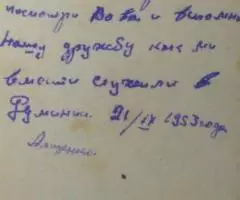 посмотри Вова и вспомни
нашу дружбу как ми
вмести служили в
Румынии. 21/IX 1953 года